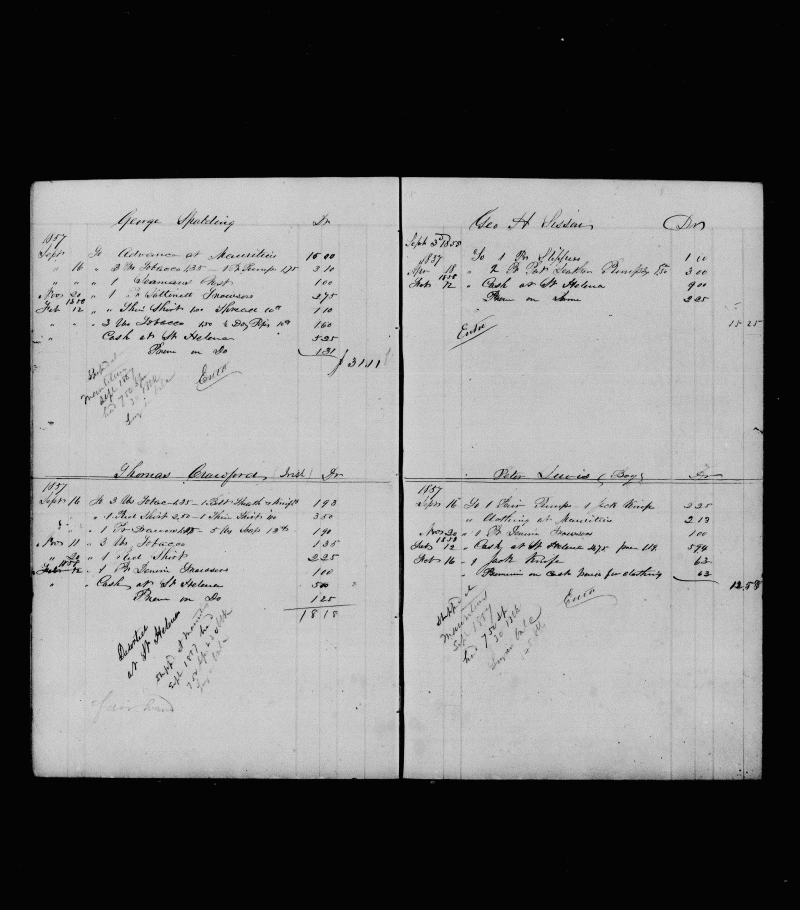 George Spalding Dr
1857
Sept To Advance at Mauritius 15 00
" 16 " 3 lbs Tobacco 135 - 1 Pr Pumps 175 3 10
" " 1 Seamans Chest 1 00
Nov 20 " 1 Pr Sattinett Trowsers 2 75
1858
Feb 12 " " Thin Shirt 100 Thread 10cts 1 10
" " 3 lbs Tobacco 150 Doz Pipes 10cts 1 60
" Cash at St Helena 5 25
Prem on Do 1 31
$ 31 41
Ent'd
Shipd at
Mauritius
Sept 1857
had 750 Sp
30 Blk
Thomas Crawford (Irish) Dr
1857
Sept 16 To 3 lbs Tobac 135 - 1 Belt Sheath & Knife 1 93
" " 1 Red Shirt 250 - 1 Thin Shirt 100 3 50
" " 1 Pr Drawers - 5 lbs Soap 1 90
Nov 11 " 3 lbs Tobacco 1 35
" 20 " 1 Red Shirt 2 25
1858
Feb 12 " 1 Pr Denim Trowsers 1 00
" Cash at St Helena 5 00
Prem on Do 1 25
18 18
Deserted
at St Helena
Shipd at Mauritius
Sept 1857 had
750 Sp
Geo H Sisson Dr
Sept 3d 1855 To 1 Pr Slippers 1 00
1857
Apr 18 " 2 Pr Pat Leather Pumps 150 3 00
1858
Feb 12 " Cash at St Helena 9 00
Prem on Same 2 25
15 25
Ent'd
Peter Lewis (Boy) Dr
1857
Sept 16 To 1 Pair Pumps 1 Jack Knife 2 25
" Clothing at Mauritius 2 13
Nov 20 " 1 Pr Denim Trowsers 1 00
1858
Feb 12 " Cash at St Helena 475 prem 1.19 5 94
Feb 16 " 1 Jack Knife 63
" Premium on Cash paid for clothing 63
12 58
Ent'd
Shipd at
Mauritius
Sept 1857
had 750 Sp
30 Blk